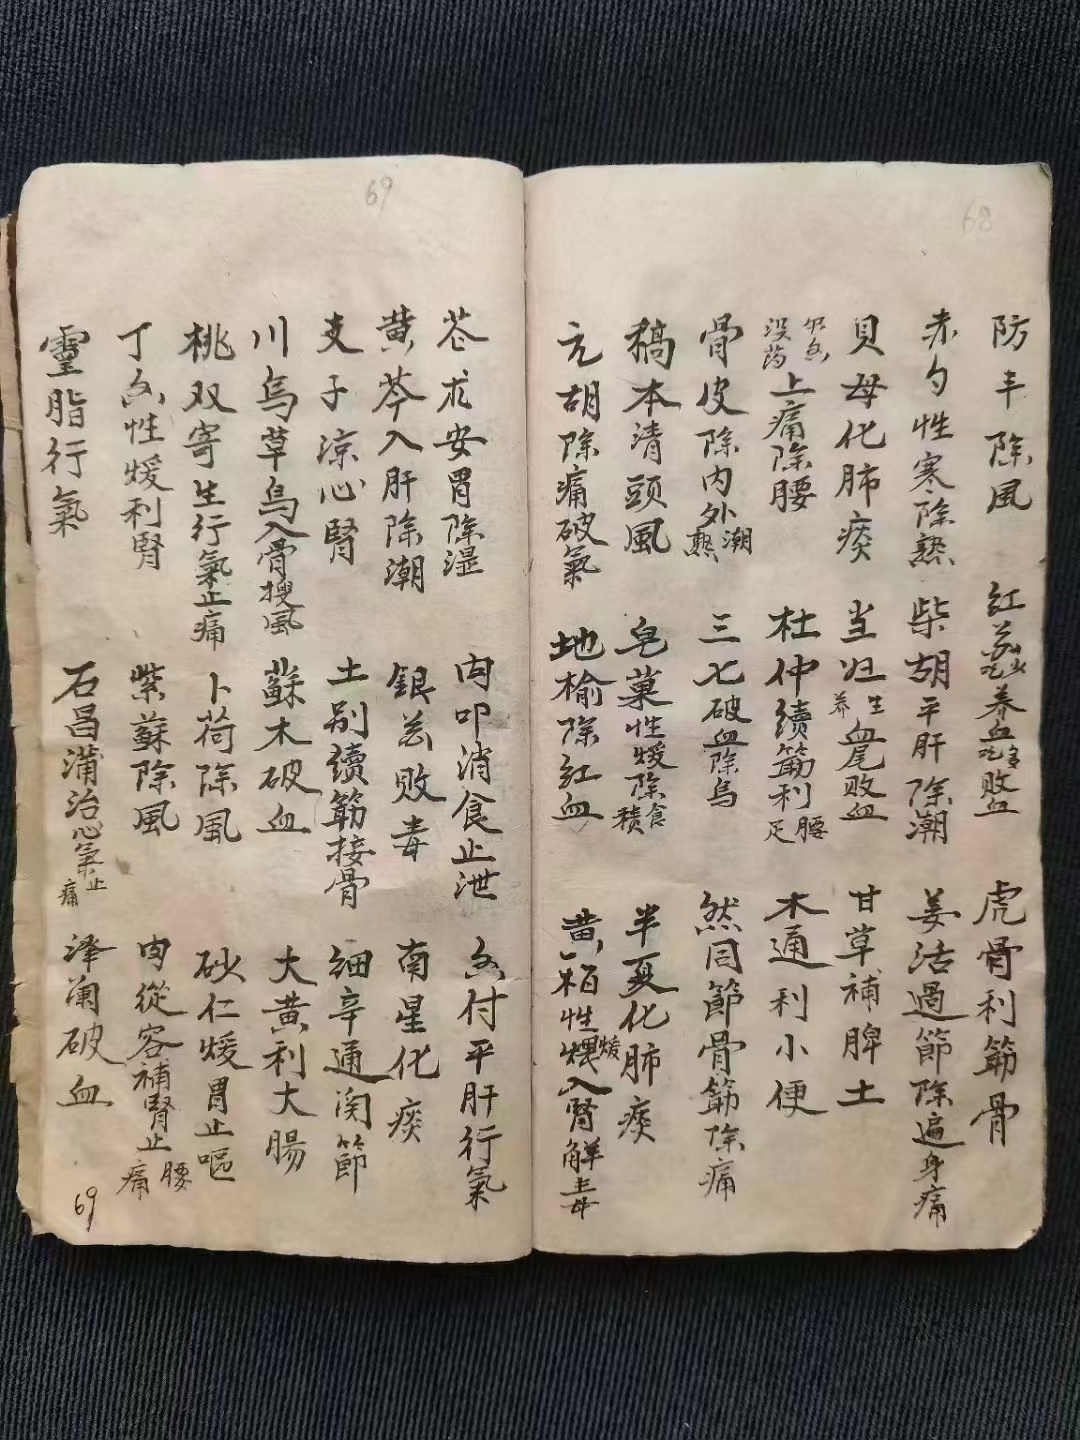 68
防丰除風 紅花少吃养血吃多敗血 虎骨利筋骨
赤勺性寒除熟 柴胡平肝除潮 姜活過節除遍身痛
貝母化肺痰 当归养生血尾敗血 甘草補脾土
没药上痛除腰 杜仲續筋利腰足 木通利小便
骨皮除内外潮熟 三七破血除烏 然同節骨筋除痛
稿本清頭風 皂菓性煖除食積 半夏化肺痰
元胡除痛破氣 地榆除紅血 黄栢性煖入腎解毒
69
苍朮安胃除湿 肉叩消食止泄 付平肝行氣
黄芩入肝除潮 銀花敗毒 南星化痰
支子凉心腎 土别續筋接骨 细辛通関節
川烏草烏入骨搜風 蘇木破血 大黄利大腸
桃双寄生行氣止痛 卜荷除風 砂仁煖胃止嘔
丁性煖利腎 紫蘇除風 肉從容補腎止腰痛
靈脂行氣 石昌蒲治心氣止痛 泽澜破血
69